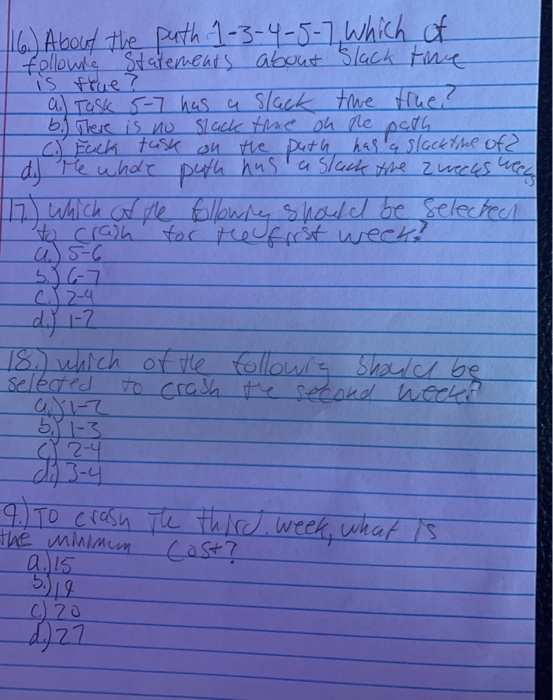 16.) About the path 1-3-4-5-7 Which of
followng Statements about Slack time
is true?
a.) Task 5-7 has a slack tme true?
b.) There is no slack time on the path
c.) Each task on the path has a slacktime of 2
d.) The whole path has a slack tme 2 weeks
17.) Which of the followng should be selected
to crash for the first week?
a.) 5-6
b.) 6-7
c.) 2-4
d.) 1-2
18.) which of the followng should be
selected to crash the second week?
a.) 1-2
b.) 1-3
c.) 2-4
d.) 3-4
9.) To crash The third week, what is
the minimum cost?
a.) 15
b.) 19
c.) 20
d.) 27